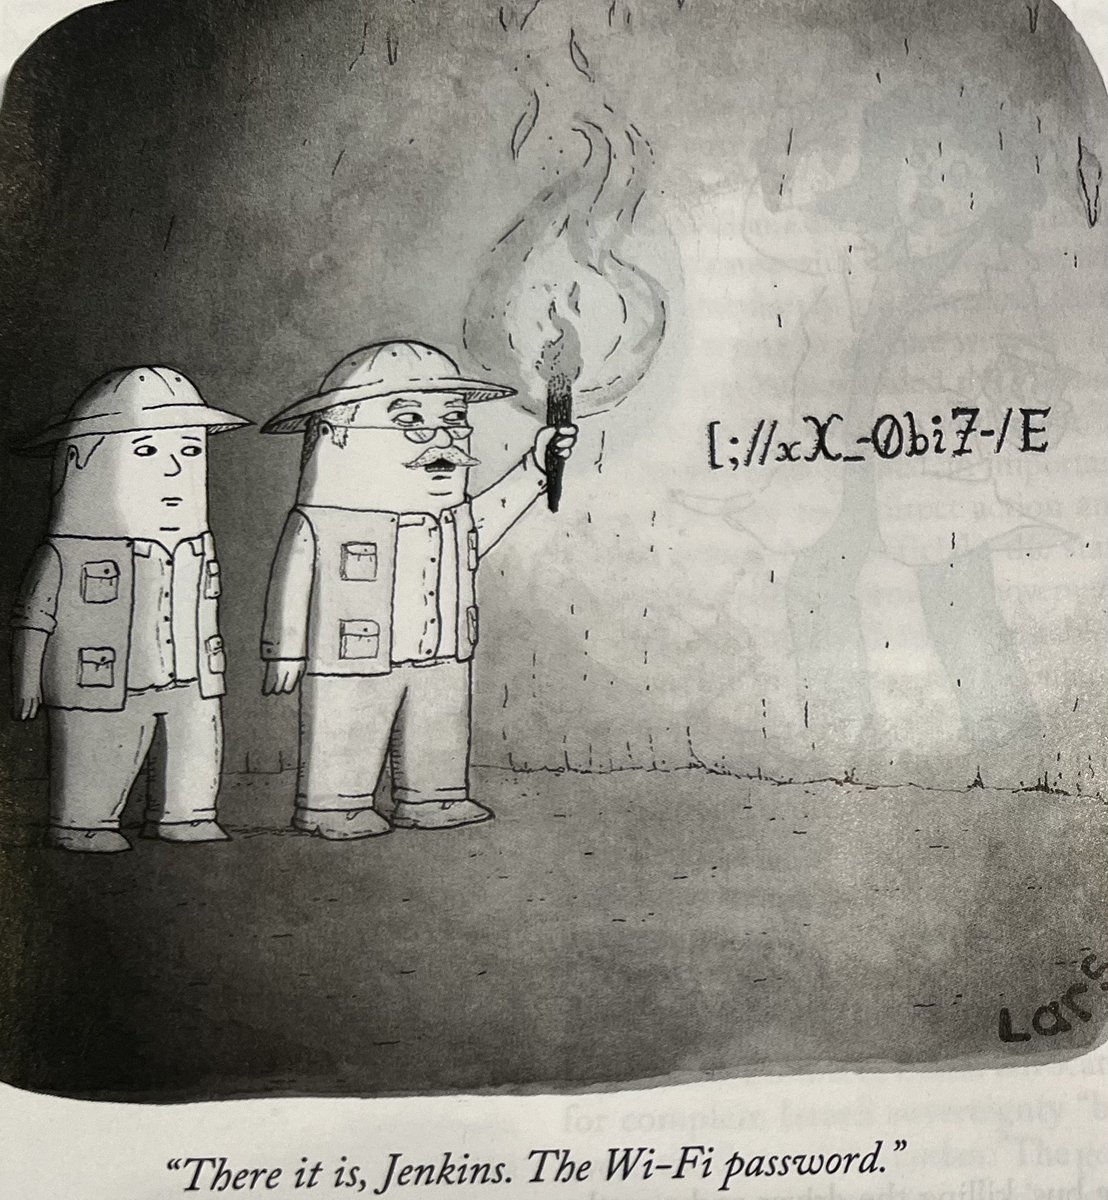 [;//xX_-0bi7-/E
Lars
“There it is, Jenkins. The Wi-Fi password.”